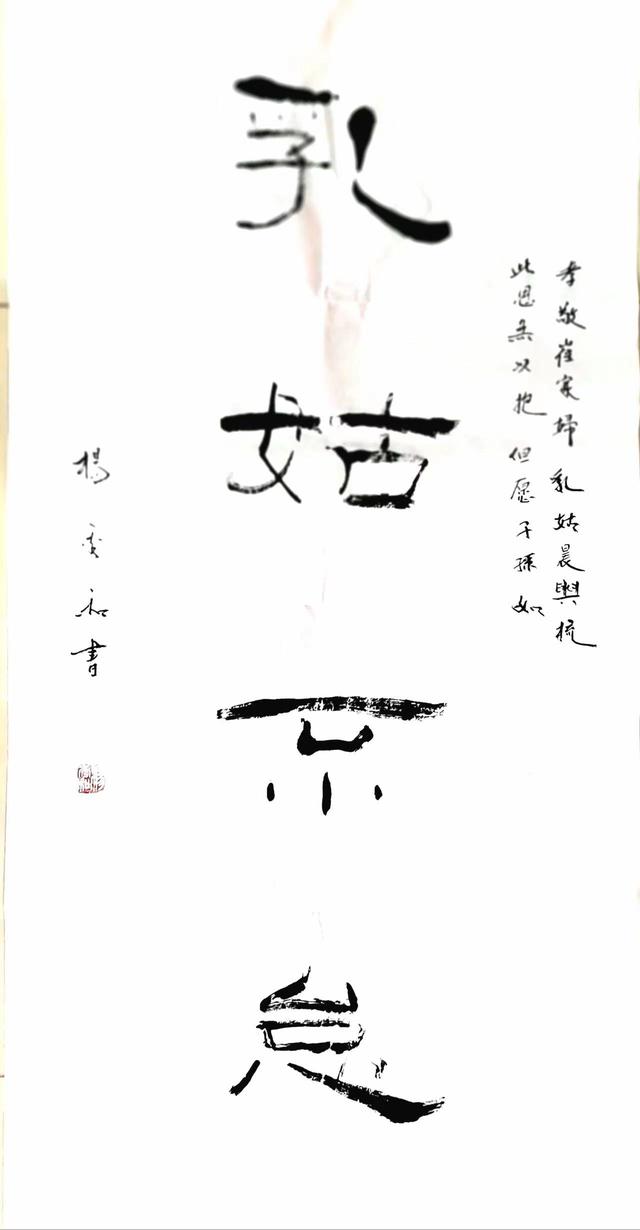 孝敬崔家婦 乳姑晨盥梳
此恩無以抱 但愿子孫如
乳姑不怠
楊和書